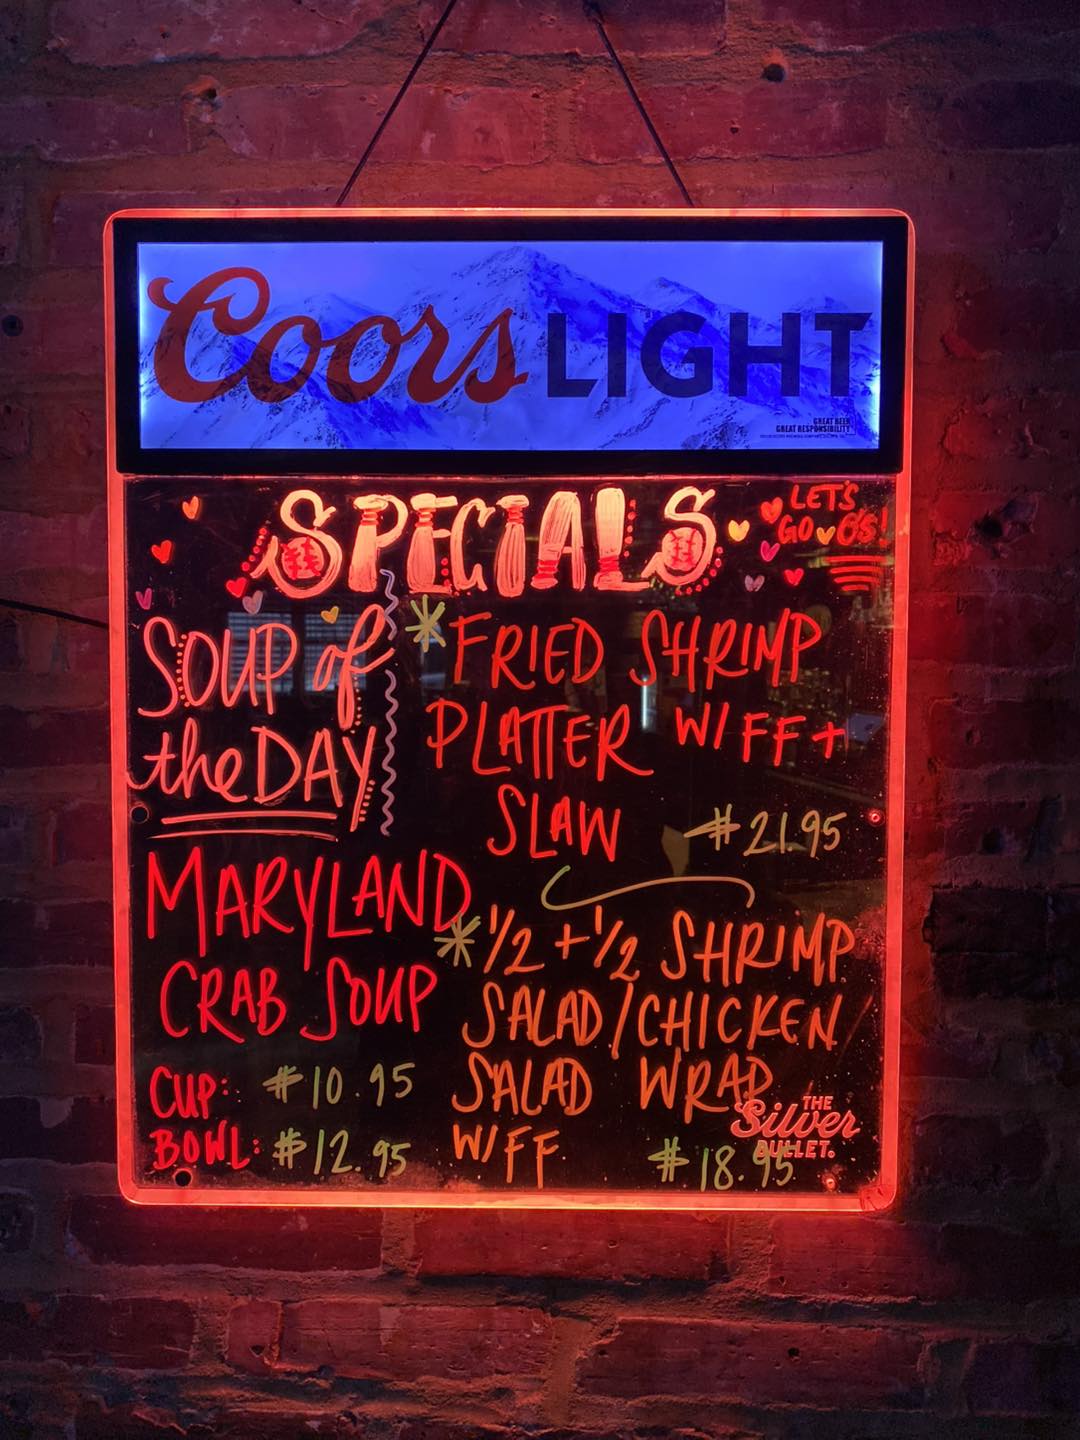 Coors LIGHT
GREAT BEER
GREAT RESPONSIBILITY
SPECIALS
LET'S
GO O'S!
SOUP of
the DAY
MARYLAND
CRAB SOUP
CUP: $10.95
BOWL: $12.95
*FRIED SHRIMP
PLATTER W/FF +
SLAW $21.95
*1/2 + 1/2 SHRIMP
SALAD/CHICKEN
SALAD WRAP
W/FF $18.95
THE
Silver
BULLET.